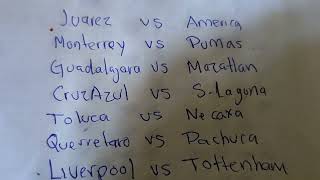 Juarez vs America
Monterrey vs Pumas
Guadalajara vs Mazatlan
CruzAzul vs S.Laguna
Toluca vs Necaxa
Querretaro vs Pachuca
Liverpool vs Tottenham